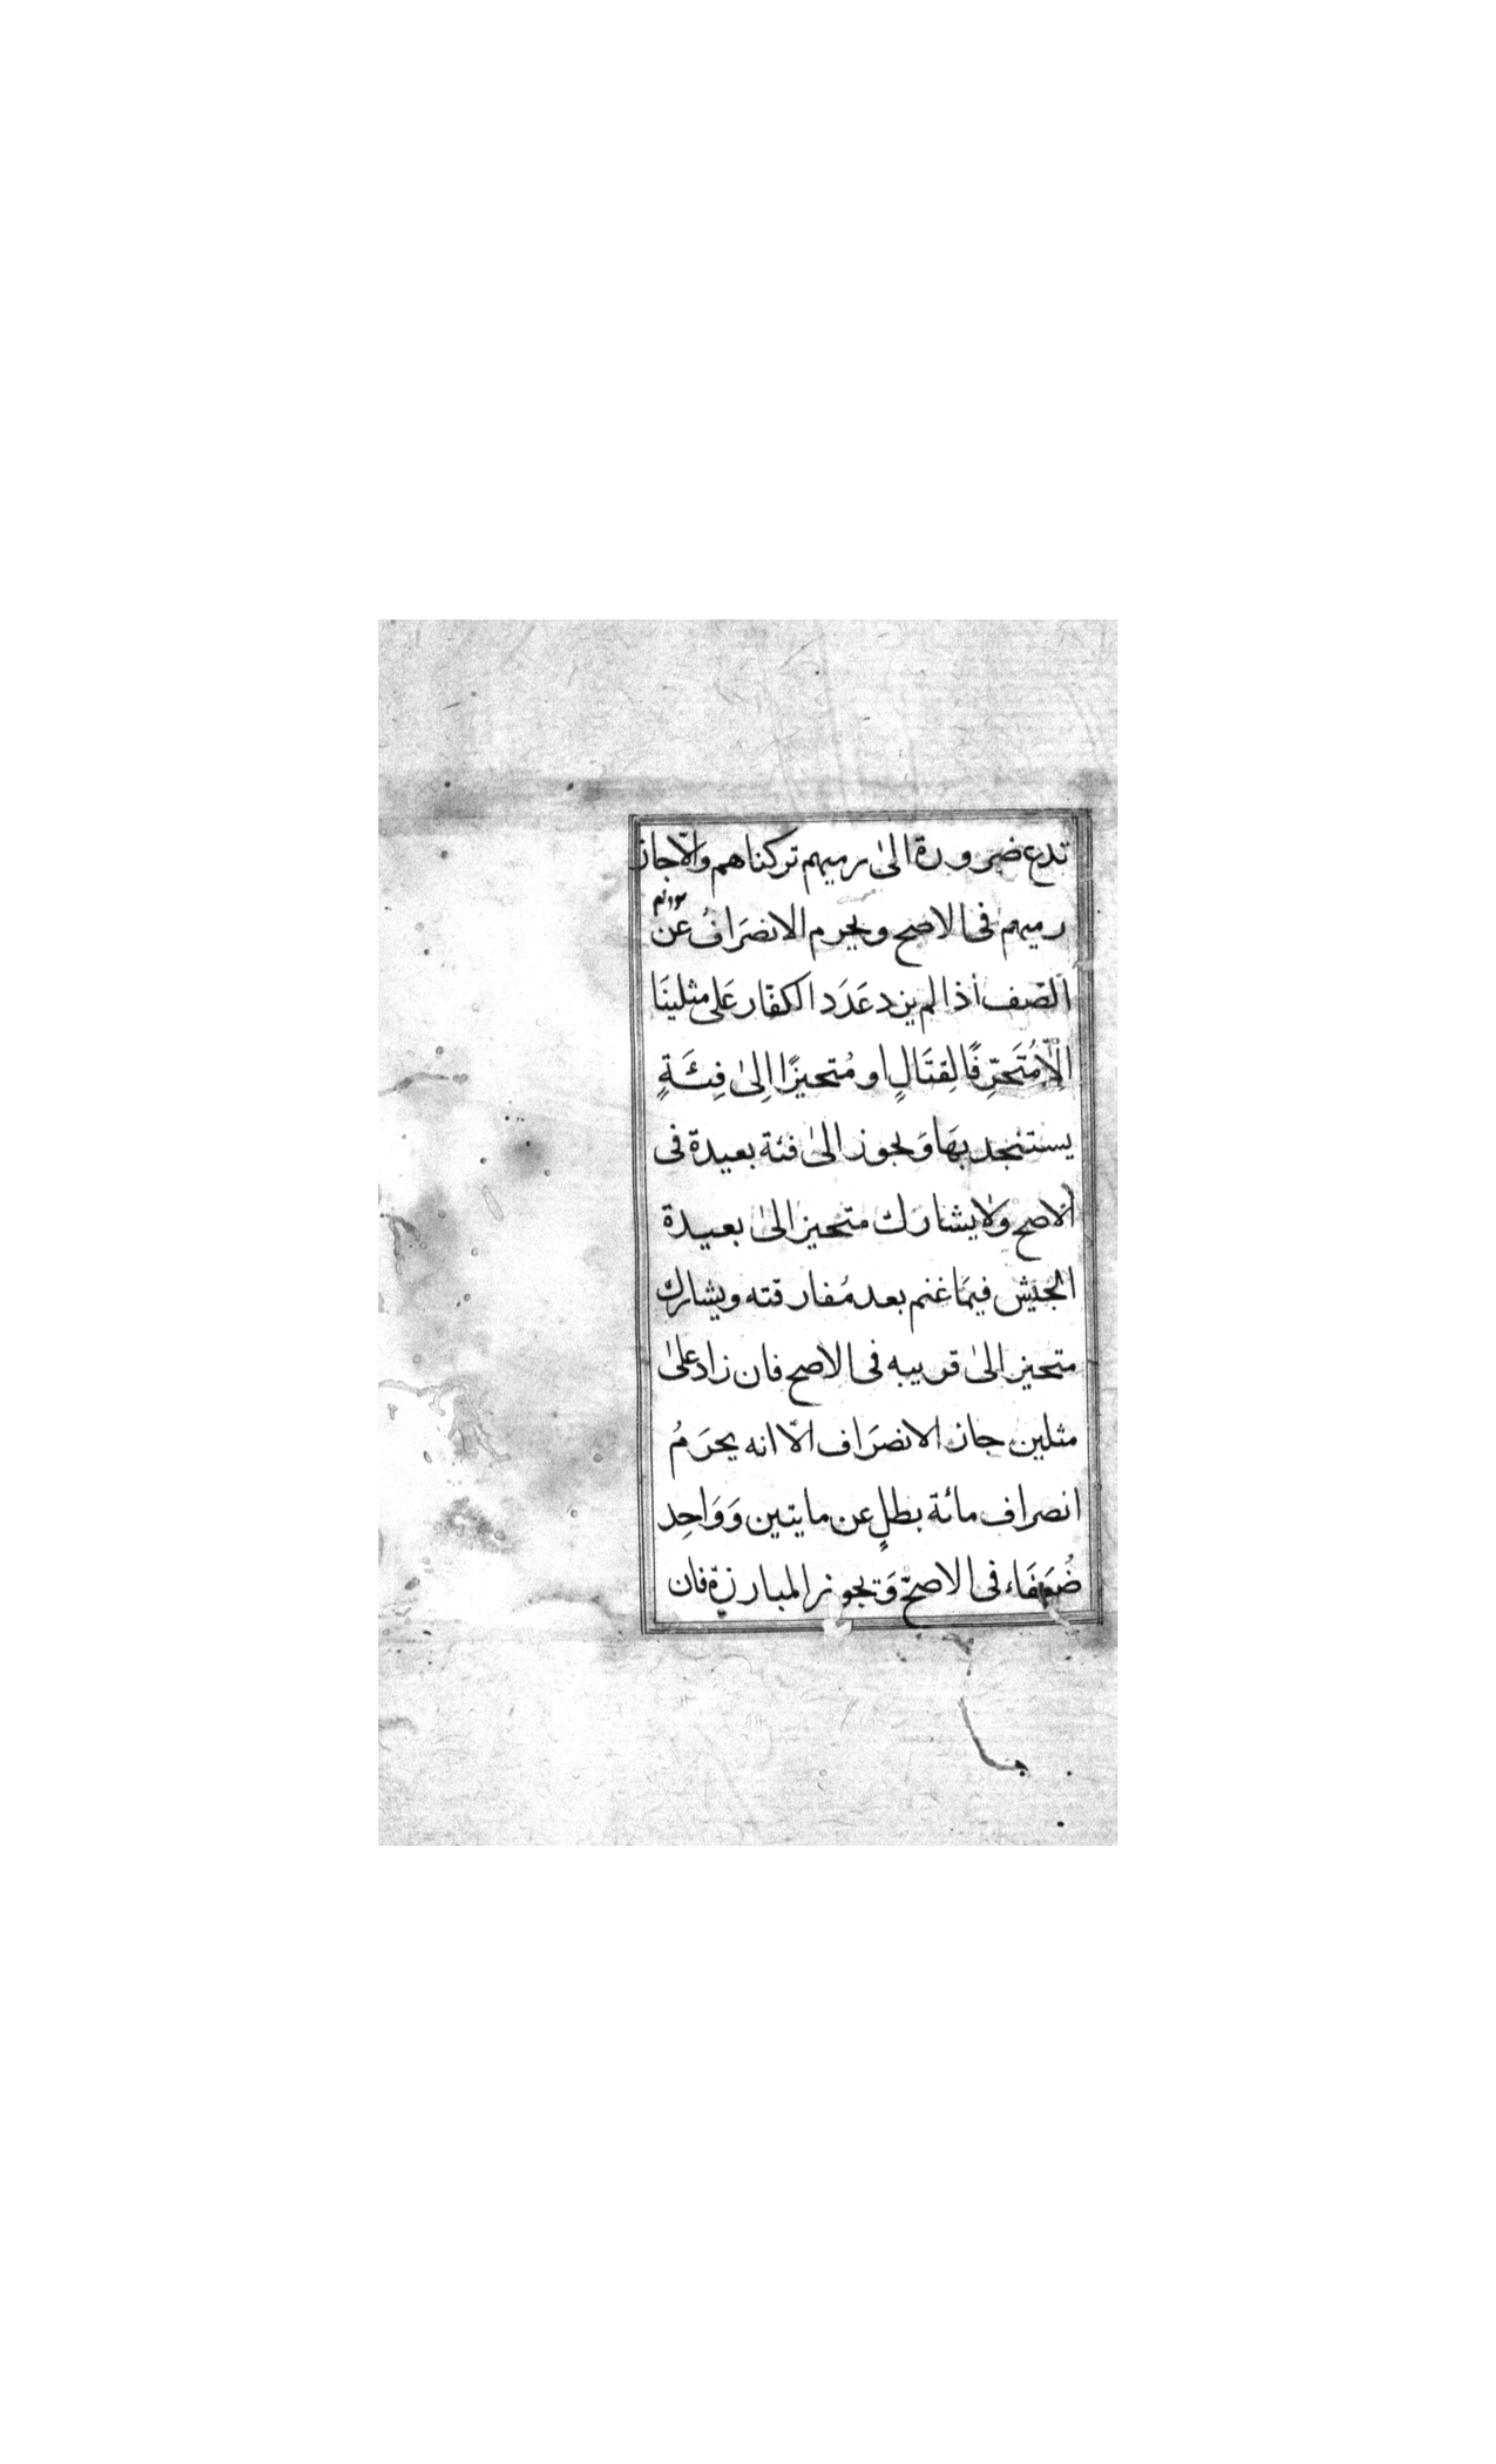 تدع ضرورة الىٰ رميهم تركناهم والّا جاز
رميهم فى الاصح ويحرم الانصَرَافُ عَن
الصّف أذا لم يزد عَدَد الكفّار عَلى مثلينَا
الّاِ مُتَحَرِّفًا لِقتَالٍ او مُتحيزًا اِلىٰ فِئَةٍ
يستنجد بهَا وَيجوز الىٰ فئة بعيدة فى
الاصح ولا يشارك متحيز الىٰ بعيدة
الجَيْش فيمَا غنم بعد مُفارقته ويشارك
متحيز الىٰ قريبه فى الاصح فان زاد علىٰ
مثلين جاز الانصَرَاف الّا انه يحرَمُ
انصراف مائة بطلٍ عن مايتين وَوَاحِد
ضُعَفَاء فى الاصحّ وَتجوز المبارزة فان